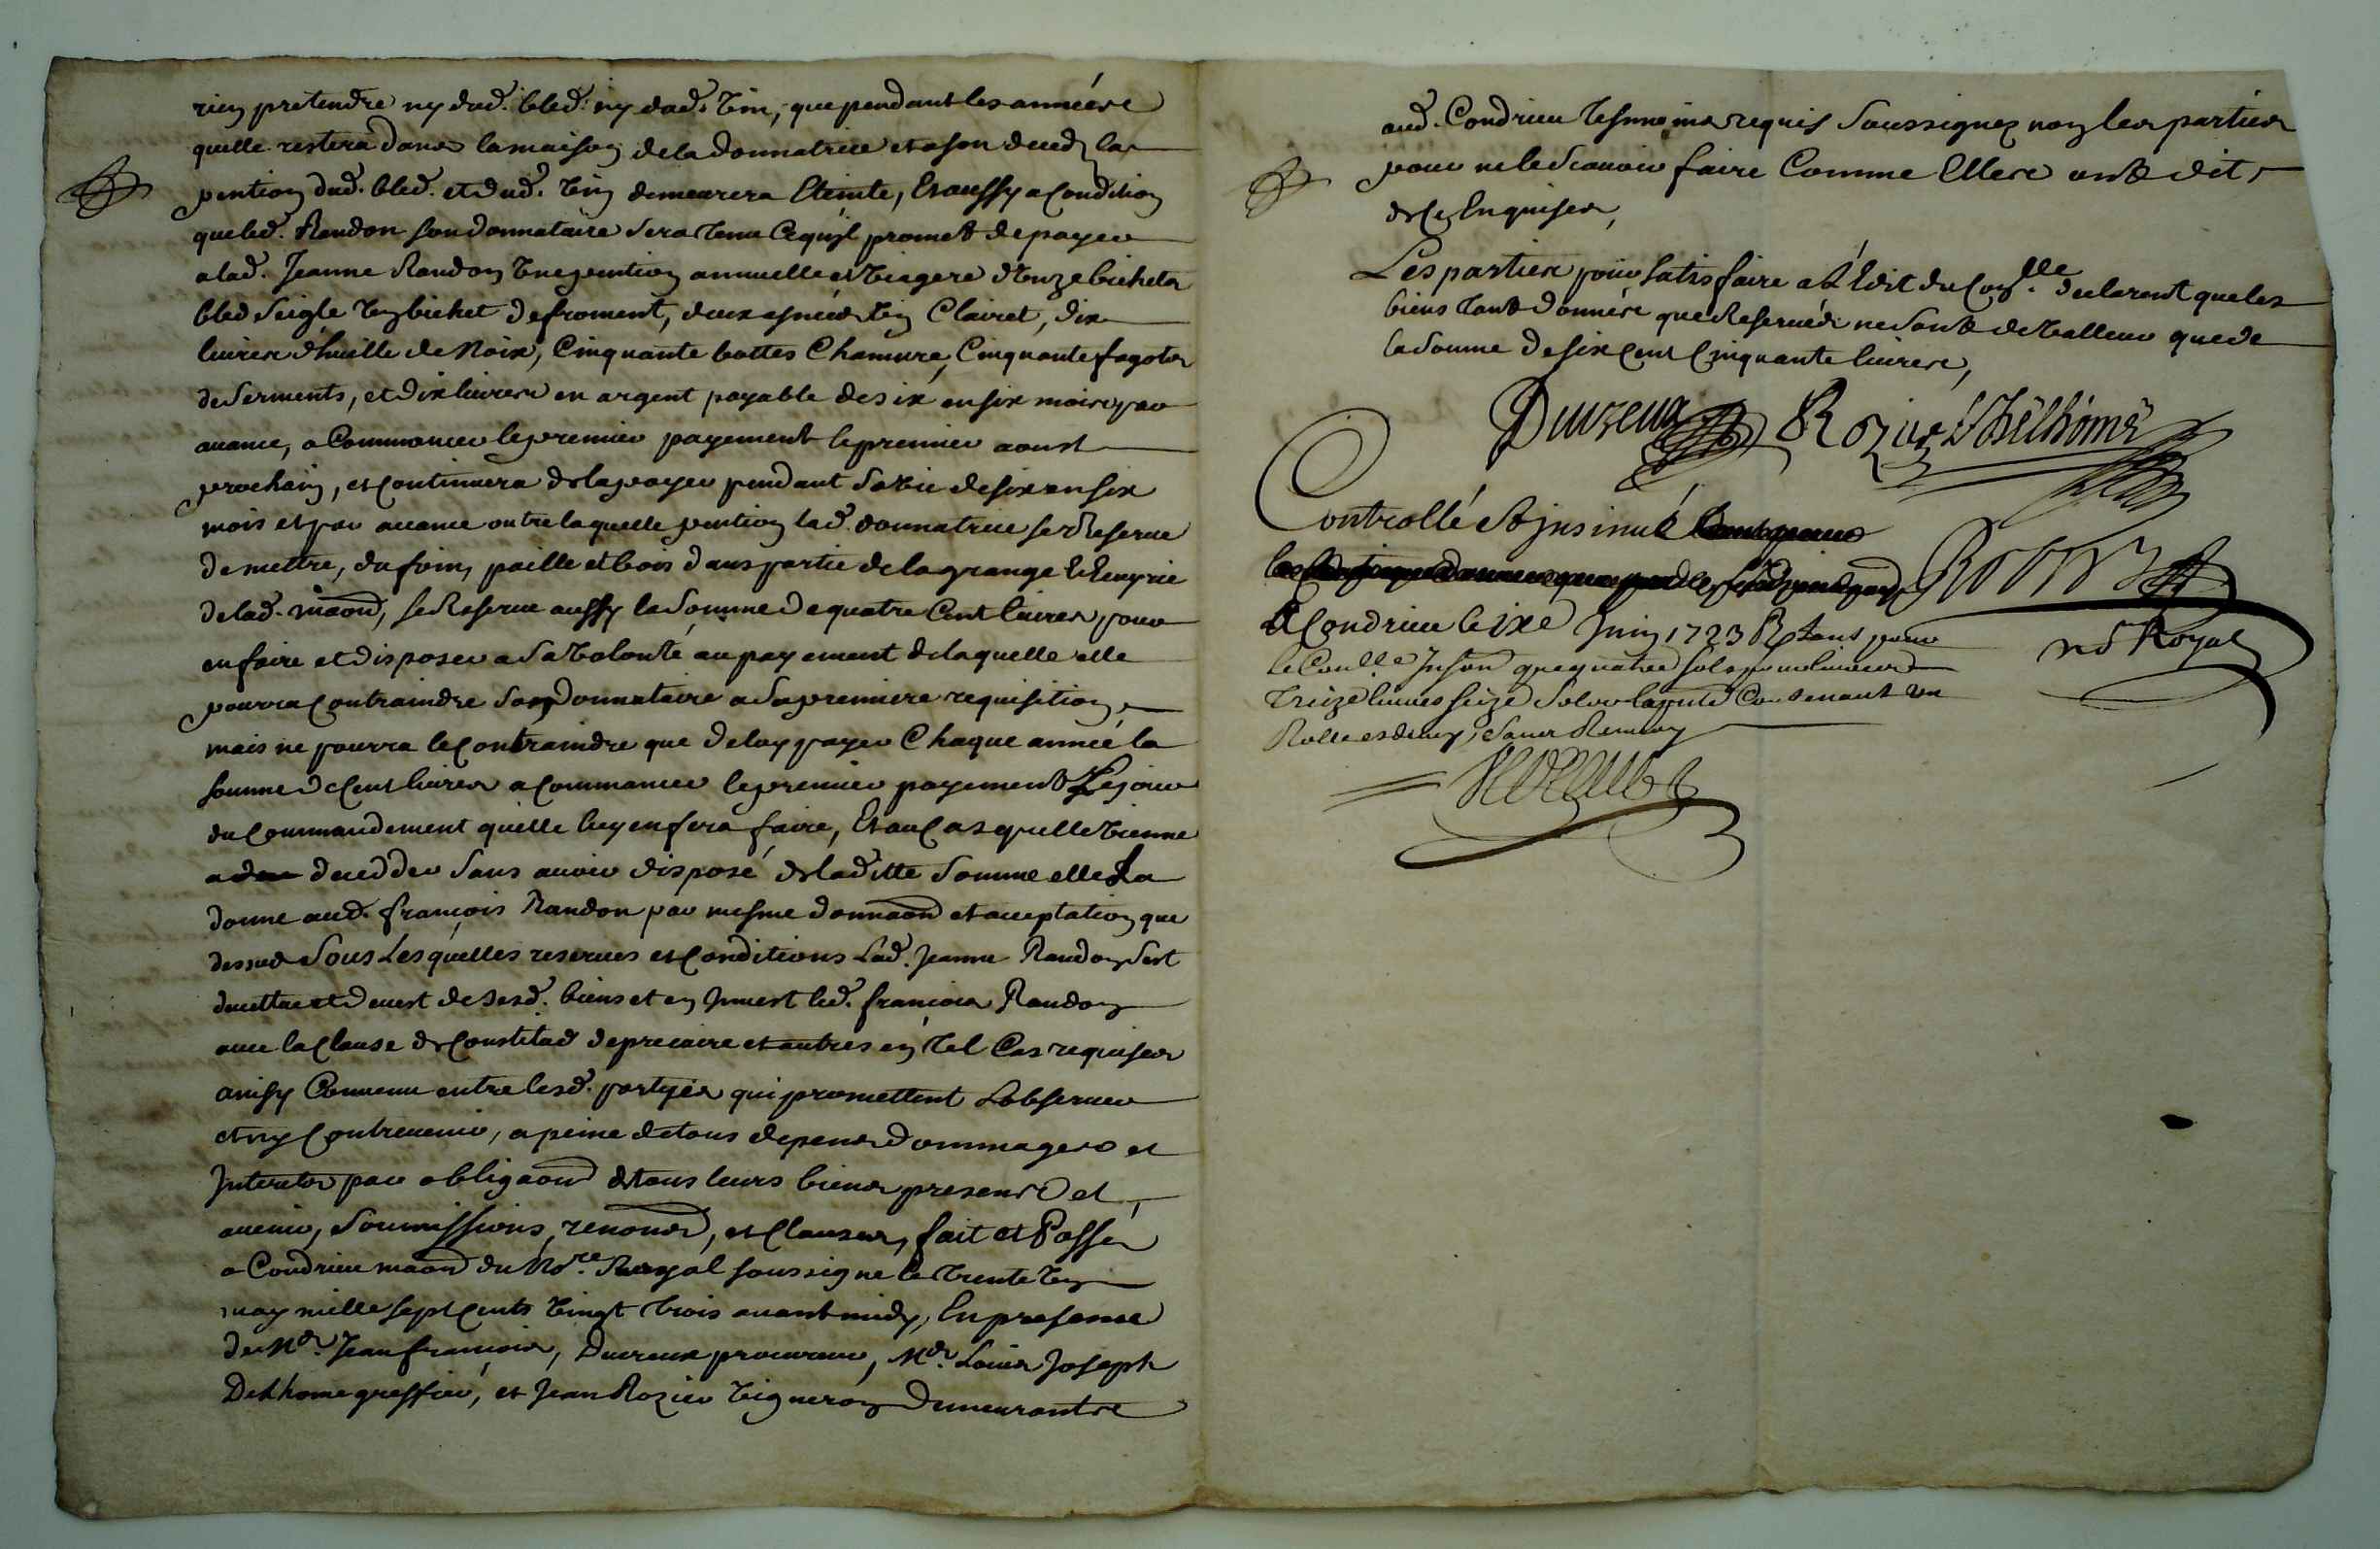 rien pretendre ny dud. bled. ny dud. vin, que pendant les années
quelle restera dans la maison de la donnatrice et a son deceds la
pention dud. bled. et dud. vin demeurera Eteinte, Et aussy a Condition
que led. Randon son donnataire sera tenu Ce quil promet de payer
a lad. Jeanne Randon une pention annuelle et viagere d'onze bichets
bled seigle un bichet de froment, deux asnées vin Clairet, dix
livres d'huille de Noix, Cinquante bottes Chanure, Cinquante fagots
de serments, et dix livres en argent payable de six en six mois par
auance, a Commancer le premier payement le premier aoust
prochain, et Continuera de la payer pendant sa vie de six en six
mois et par auance outre laquelle pention lad. donnatrice se Reserue
de mettre, du foin, paille et bois dans partie de la grange Et Ecuyrie
de lad. maon, se Reserue aussy la somme de quatre Cent livres pour
en faire et disposer a sa volonté, au payement de laquelle elle
pourra Contraindre son donnataire a sa premiere requisition
mais ne pourra le Contraindre que de luy payer Chaque année la
somme de Cent livres a Commancer le premier payement Le jour
du Commandement quelle luy en fera faire, Et au Cas quelle vienne
a decedder sans auoir disposé de laditte somme elle La
donne aud. françois Randon par mesme donnaon et acceptation que
dessus sous Lesquelles reserues et Conditions Lad. Jeanne Randon sest
deuettue et deuest de sesd. biens et en Jnuest led. françois Randon
auec la Clause de Constitud de precaire et autres en tel Cas requises
ainsy Conuenu entre lesd. partyes qui promettent Lobseruer
et ny Contreuenir, a peine de tous depens dommages et
Jnterets par obligaon de tous leurs biens presens et
auenir, soumissions, renonon, et Clauses, fait et Passé
a Condrieu maon du No.re Royal soussigne le trente un
may mille sept Cents vingt trois auant midy, En presence
de Me. Jean françois, Ducreux procureur, Me. Louis Joseph
Delhome greffier, et Jean Rozier vigneron demeurants
aud. Condrieu tesmoins requis soussignez non les parties
pour ne le scauoir faire Comme Elles ont dit
de Ce Enquises,
Les parties pour satisfaire a L'Edit du Con.lle declarent que les
biens tant donnés que Reserués ne sont de valleur que de
la somme de six Cent Cinquante livres,
Ducreux Rozier Delhome
Controllé et jnsinué
A Condrieu le ixe Juin 1723 R tant pour
le Con.lle Jnson que quatre sols pour livre
treize livres seize sols la minute Contenant un
Rolle et demy, sans Renuoy
no Royal